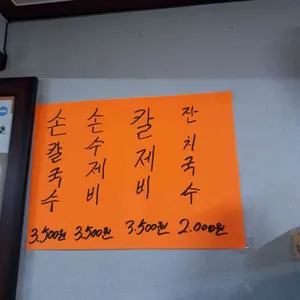 손칼국수
3.500원
손수제비
3.500원
칼제비
3.500원
잔치국수
2.000원